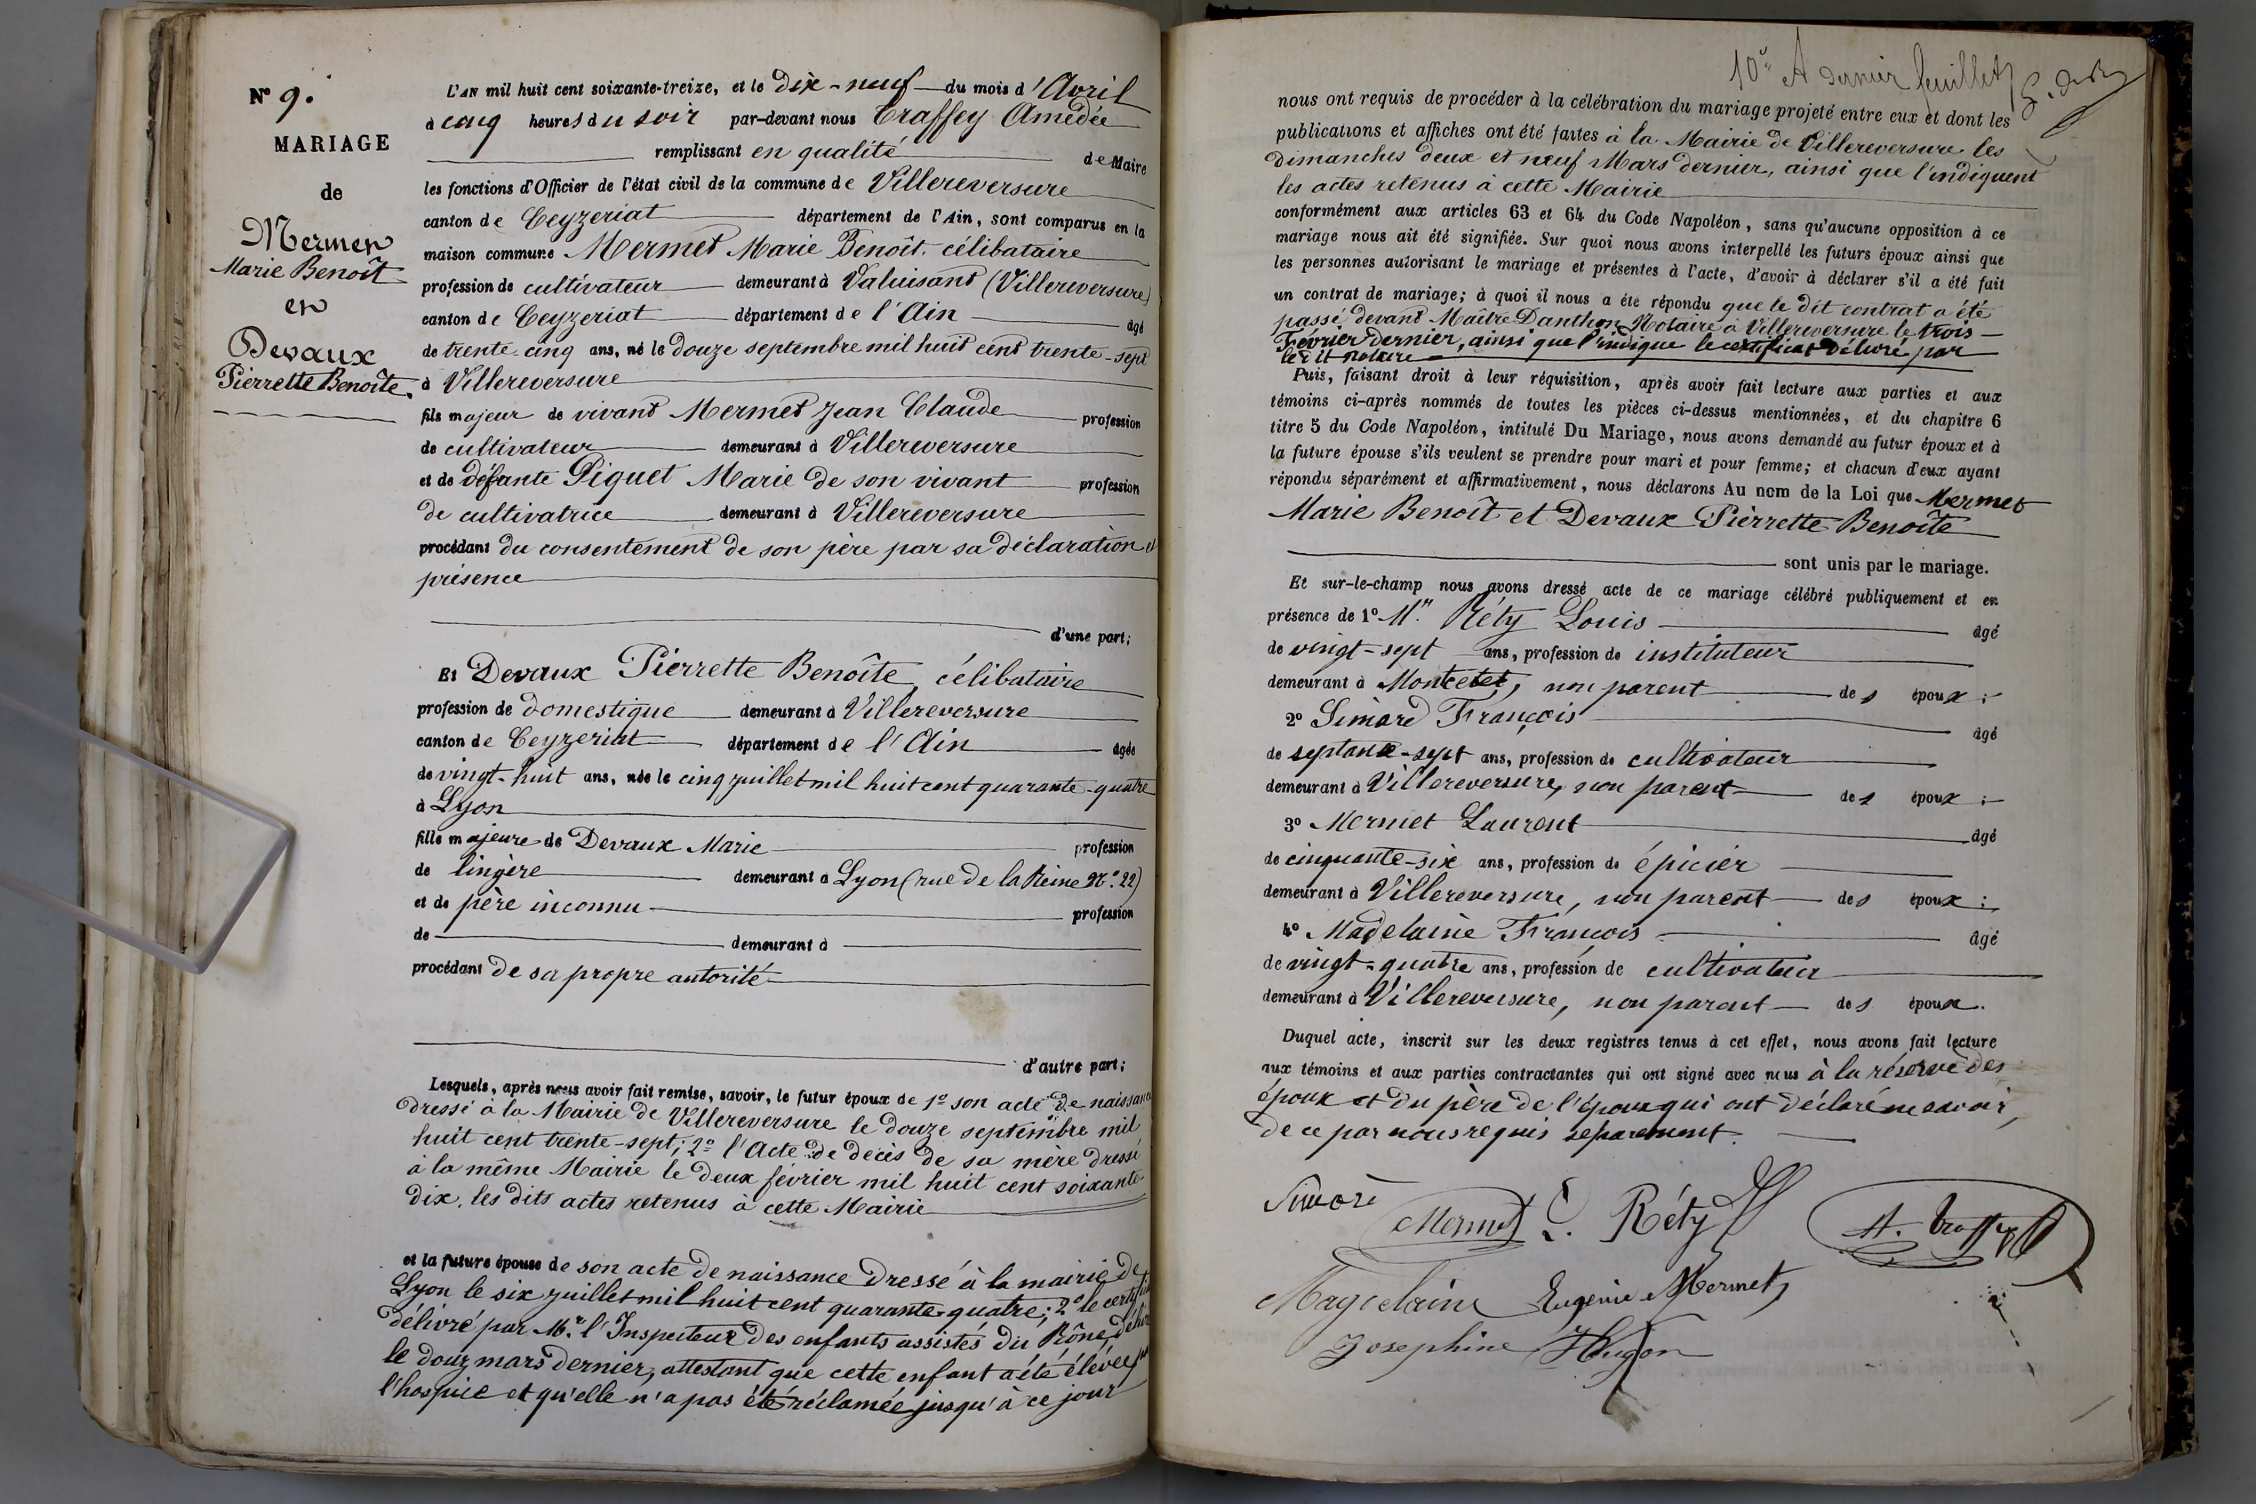 N° 9.
MARIAGE
de
Mermet
Marie Benoît
et
Devaux
Pierrette Benoîte.
L'AN mil huit cent soixante-treize, et le dix-neuf du mois d'Avril
à cinq heures du soir par-devant nous Traffey Amédée
remplissant en qualité de Maire
les fonctions d'Officier de l'état civil de la commune de Villereversure
canton de Ceyzeriat département de l'Ain, sont comparus en la
maison commune Mermet Marie Benoît, célibataire
profession de cultivateur demeurant à Valuisant (Villereversure)
canton de Ceyzeriat département de l'Ain âgé
de trente-cinq ans, né le douze septembre mil huit cent trente-sept
à Villereversure
fils majeur de vivant Mermet Jean Claude profession
de cultivateur demeurant à Villereversure
et de défunte Piquet Marie de son vivant profession
de cultivatrice demeurant à Villereversure
procédant du consentement de son père par sa déclaration et
présence
d'une part;
Et Devaux Pierrette Benoîte, célibataire
profession de domestique demeurant à Villereversure
canton de Ceyzeriat département de l'Ain âgée
de vingt-huit ans, née le cinq juillet mil huit cent quarante-quatre
à Lyon
fille majeure de Devaux Marie profession
de lingère demeurant à Lyon (rue de la Reine N°. 22)
et de père inconnu profession
de demeurant à
procédant de sa propre autorité
d'autre part;
Lesquels, après nous avoir fait remise, savoir, le futur époux de 1° son acte de naissance
dressé à la Mairie de Villereversure le douze septembre mil
huit cent trente-sept; 2° l'Acte de décès de sa mère dressé
à la même Mairie le deux février mil huit cent soixante
dix, les dits actes retenus à cette Mairie
et la future épouse de son acte de naissance dressé à la mairie de
Lyon le six juillet mil huit cent quarante-quatre; 2° le certificat
délivré par Mr. l'Inspecteur des enfants assistés du Rône, délivré
le douz mars dernier, attestant que cette enfant a été élevée par
l'hospice et qu'elle n'a pas été réclamée jusqu'à ce jour
10e A dernier feuillet
nous ont requis de procéder à la célébration du mariage projeté entre eux et dont les
publications et affiches ont été faites à la Mairie de Villereversure les
dimanches deux et neuf Mars dernier, ainsi que l'indiquent
les actes retenus à cette Mairie
conformément aux articles 63 et 64 du Code Napoléon, sans qu'aucune opposition à ce
mariage nous ait été signifiée. Sur quoi nous avons interpellé les futurs époux ainsi que
les personnes autorisant le mariage et présentes à l'acte, d'avoir à déclarer s'il a été fait
un contrat de mariage; à quoi il nous a été répondu que le dit contrat a été
passé devant Maître Danthon Notaire à Villereversure le trois
Février dernier, ainsi que l'indique le certificat délivré par
le dit notaire
Puis, faisant droit à leur réquisition, après avoir fait lecture aux parties et aux
témoins ci-après nommés de toutes les pièces ci-dessus mentionnées, et du chapitre 6
titre 5 du Code Napoléon, intitulé Du Mariage, nous avons demandé au futur époux et à
la future épouse s'ils veulent se prendre pour mari et pour femme; et chacun d'eux ayant
répondu séparément et affirmativement, nous déclarons Au nom de la Loi que Mermet
Marie Benoît et Devaux Pierrette Benoîte
sont unis par le mariage.
Et sur-le-champ nous avons dressé acte de ce mariage célébré publiquement et en
présence de 1° Mr. Réty Louis âgé
de vingt-sept ans, profession de instituteur
demeurant à Montcetet, non parent des époux;
2° Simard François âgé
de septante-sept ans, profession de cultivateur
demeurant à Villereversure, non parent des époux;
3° Mermet Laurent âgé
de cinquante-six ans, profession de épicier
demeurant à Villereversure, non parent des époux;
4° Madelaine François âgé
de vingt-quatre ans, profession de cultivateur
demeurant à Villereversure, non parent des époux.
Duquel acte, inscrit sur les deux registres tenus à cet effet, nous avons fait lecture
aux témoins et aux parties contractantes qui ont signé avec nous à la réserve des
époux et du père de l'époux qui ont déclaré ne savoir,
de ce par nous requis séparément.
Simorè
Mermet L. Réty A. Traffey
Magdelaine Eugénie Mermet
Josephine Hugon